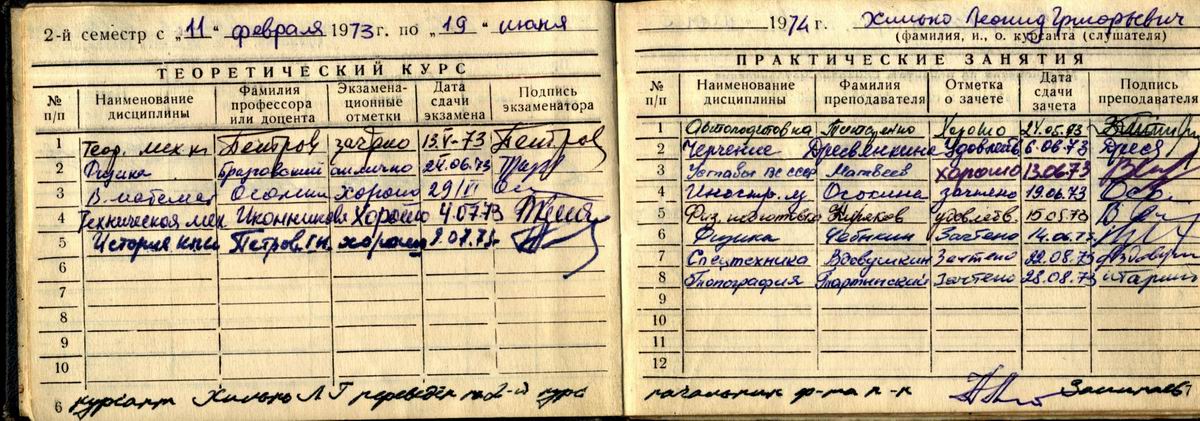 2-й семестр с „11" февраля 1973 г. по „19" июня
ТЕОРЕТИЧЕСКИЙ КУРС
№ п/п Наименование дисциплины Фамилия профессора или доцента Экзаменационные отметки Дата сдачи экзамена Подпись экзаменатора
1 Теор. мех-ка Петров зачтено 15.V-73 Петров
2 Физика отлично 24.06.73
3 В. математ Осокин хорошо 29/VI
4 Техническая мех. Иконников хорошо 4.07.73
5 История кпсс Петров хорошо 9.07.73
6
7
8
9
10
6 курсант Хилько Л Г переведён на 2-й курс
1974 г. Хилько Леонид Григорьевич
(фамилия, и., о. курсанта (слушателя)
ПРАКТИЧЕСКИЕ ЗАНЯТИЯ
№ п/п Наименование дисциплины Фамилия преподавателя Отметка о зачете Дата сдачи зачета Подпись преподавателя
1 Автоподготовка хорошо 24.05.73
2 Черчение Дресвянкина удовлетв. 6.06.73 Дресв
3 Уставы ВС СССР Матвеев хорошо 13.06.73
4 Иностр. яз Осокина зачтено 19.06.73
5 Физ. подготовка удовлетв. 15.05.73
6 Физика зачтено 14.06.73
7 Спецтехника Вдовушкин зачтено 22.08.73
8 Топография зачтено 28.08.73
9
10
11
12
начальник ф-та п-к